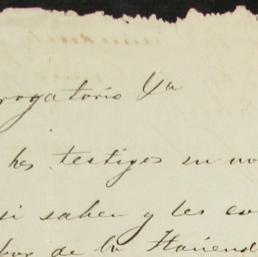 rogatorio Ya
los testigos en no
si saber y les co
bor de la Haciend